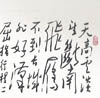 天高雲淡
望斷南
飛雁
不到長城
非好漢
屈指行程二